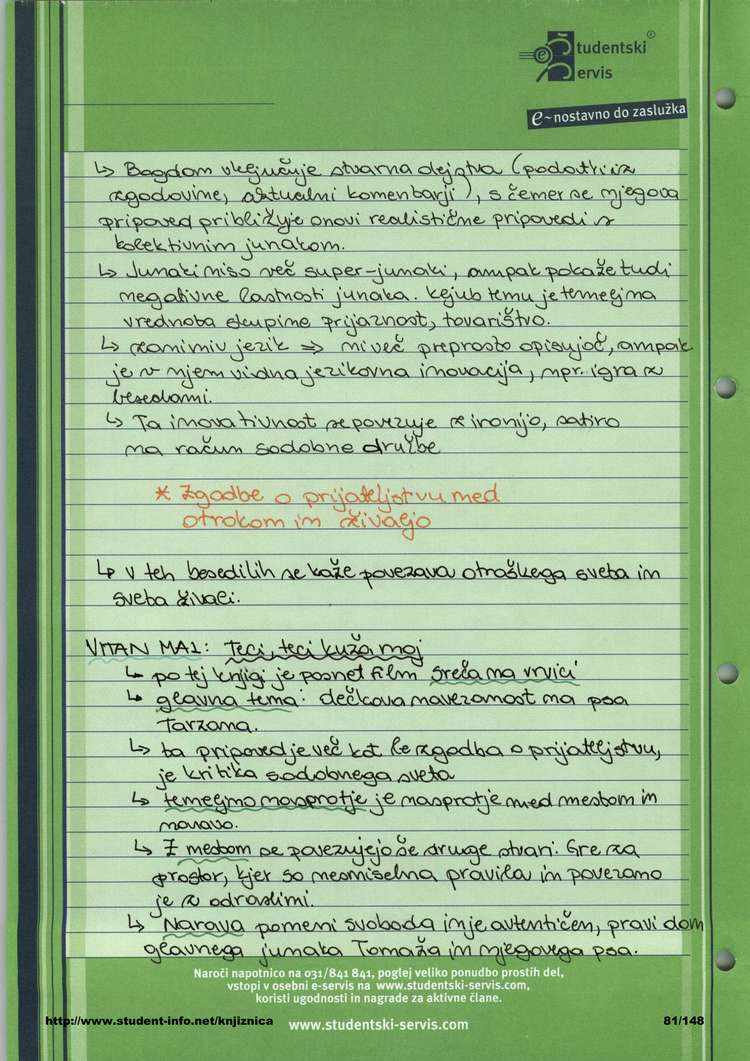 Študentski®
Servis
e-nostavno do zaslužka
↳ Bogdan vključuje stvarna dejstva (podatki iz
zgodovine, aktualni komentarji), s čemer se njegova
pripoved približuje snovi realistične pripovedi s
kolektivnim junakom.
↳ Junaki niso več super-junaki, ampak pokaže tudi
negativne lastnosti junaka. Kljub temu je temeljna
vrednota skupine prijaznost, tovarištvo.
↳ zanimiv jezik ⇒ ni več preprosto opisujoč, ampak
je v njem vidna jezikovna inovacija, npr. igra z
besedami.
↳ Ta inovativnost se povezuje z ironijo, satiro
na račun sodobne družbe
* Zgodbe o prijateljstvu med
otrokom in živaljo
↳ V teh besedilih se kaže povezava otroškega sveta in
sveta živali.
VITAN MAL: Teci, teci kuža moj
↳ po tej knjigi je posnet film Sreča na vrvici
↳ glavna tema: dečkova navezanost na psa
Tarzana.
↳ ta pripoved je več kot le zgodba o prijateljstvu,
je kritika sodobnega sveta
↳ temeljno nasprotje je nasprotje med mestom in
naravo.
↳ Z mestom se povezujejo še druge stvari. Gre za
prostor, kjer so nesmiselna pravila in povezano
je z odraslimi.
↳ Narava pomeni svoboda in je avtentičen, pravi dom
glavnega junaka Tomaža in njegovega psa.
Naroči napotnico na 031/841 841, poglej veliko ponudbo prostih del,
vstopi v osebni e-servis na www.studentski-servis.com,
koristi ugodnosti in nagrade za aktivne člane.
http://www.student-info.net/knjiznica www.studentski-servis.com 81/148